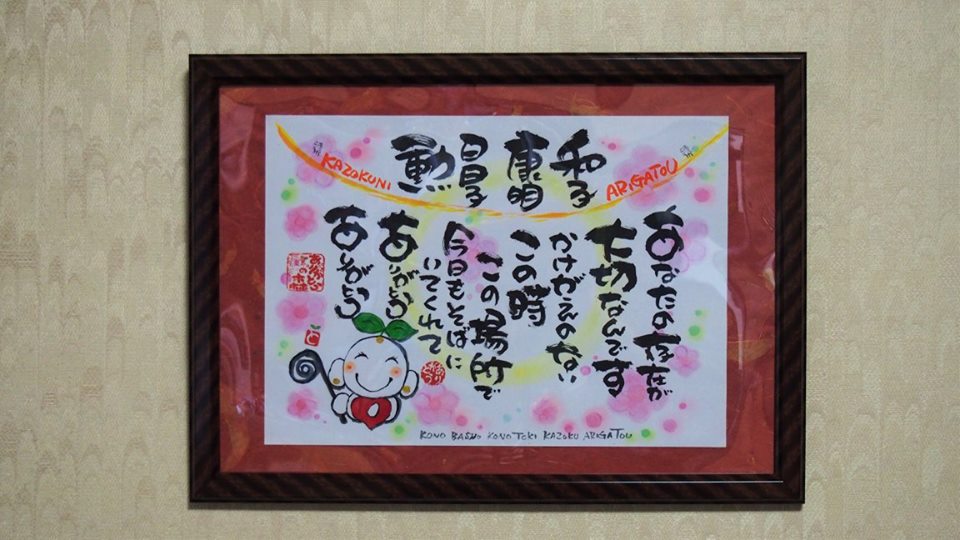 和子
康明
昌子
勲
KAZOKUNI
ARIGATOU
あなたの存在が
大切なんです
かけがえのない
この時
この場所で
今日もそばに
いてくれて
ありがとう
ありがとう
KONO BASHO KONO TOKI KAZOKU ARIGATOU